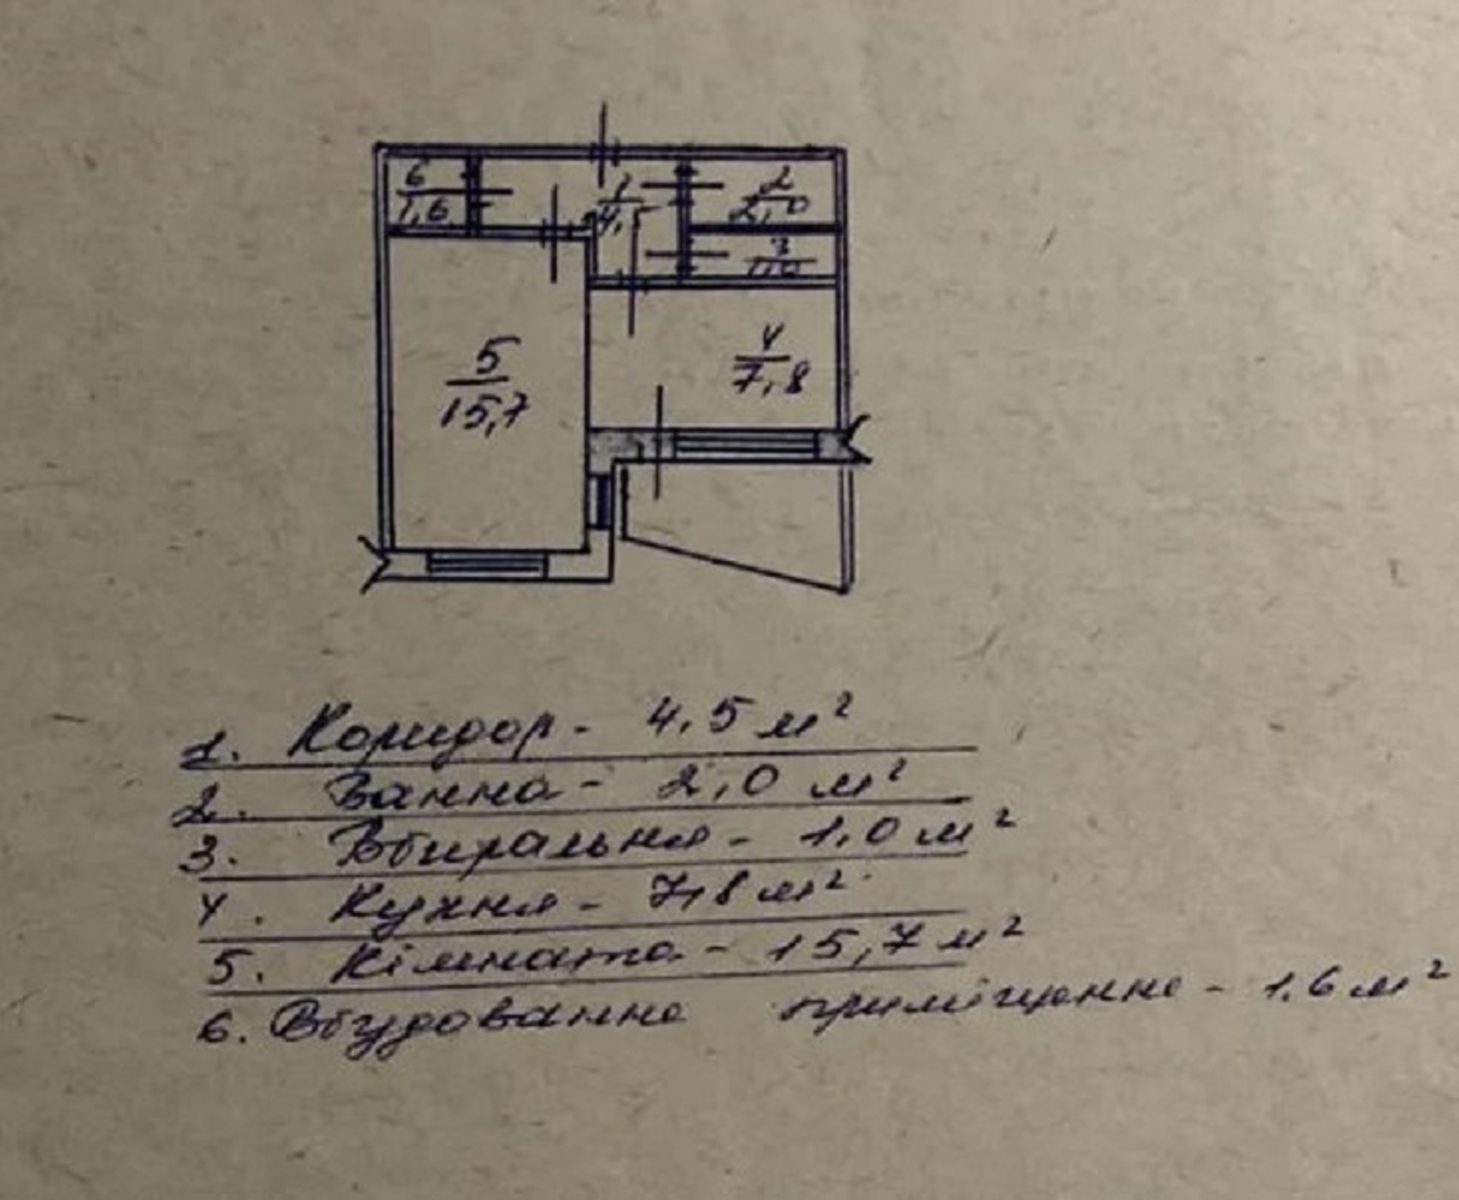 6
1,6
1
4,5
2
2,0
3
1,0
5
15,7
4
7,8
1. Коридор - 4.5 м²
2. Ванна - 2,0 м²
3. Вбиральня - 1,0 м²
4. Кухня - 7,8 м²
5. Кімната - 15,7 м²
6. Вбудованне приміщенне - 1.6 м²